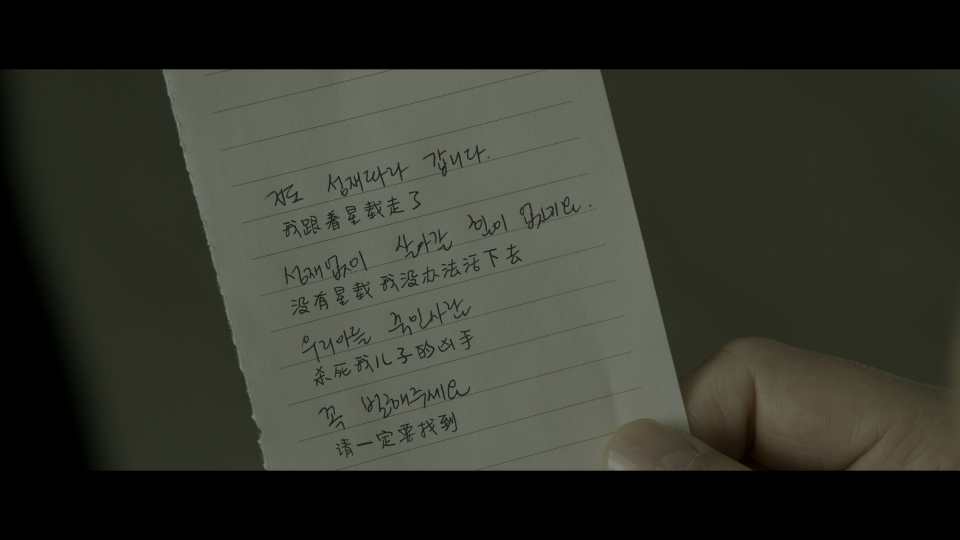 저도 성재따라 갑니다.
我跟着星载走了
성재없이 살아갈 힘이 없지요.
没有星载我没办法活下去
우리아들 죽인사람
杀死我儿子的凶手
꼭 벌해주세요
请一定要找到